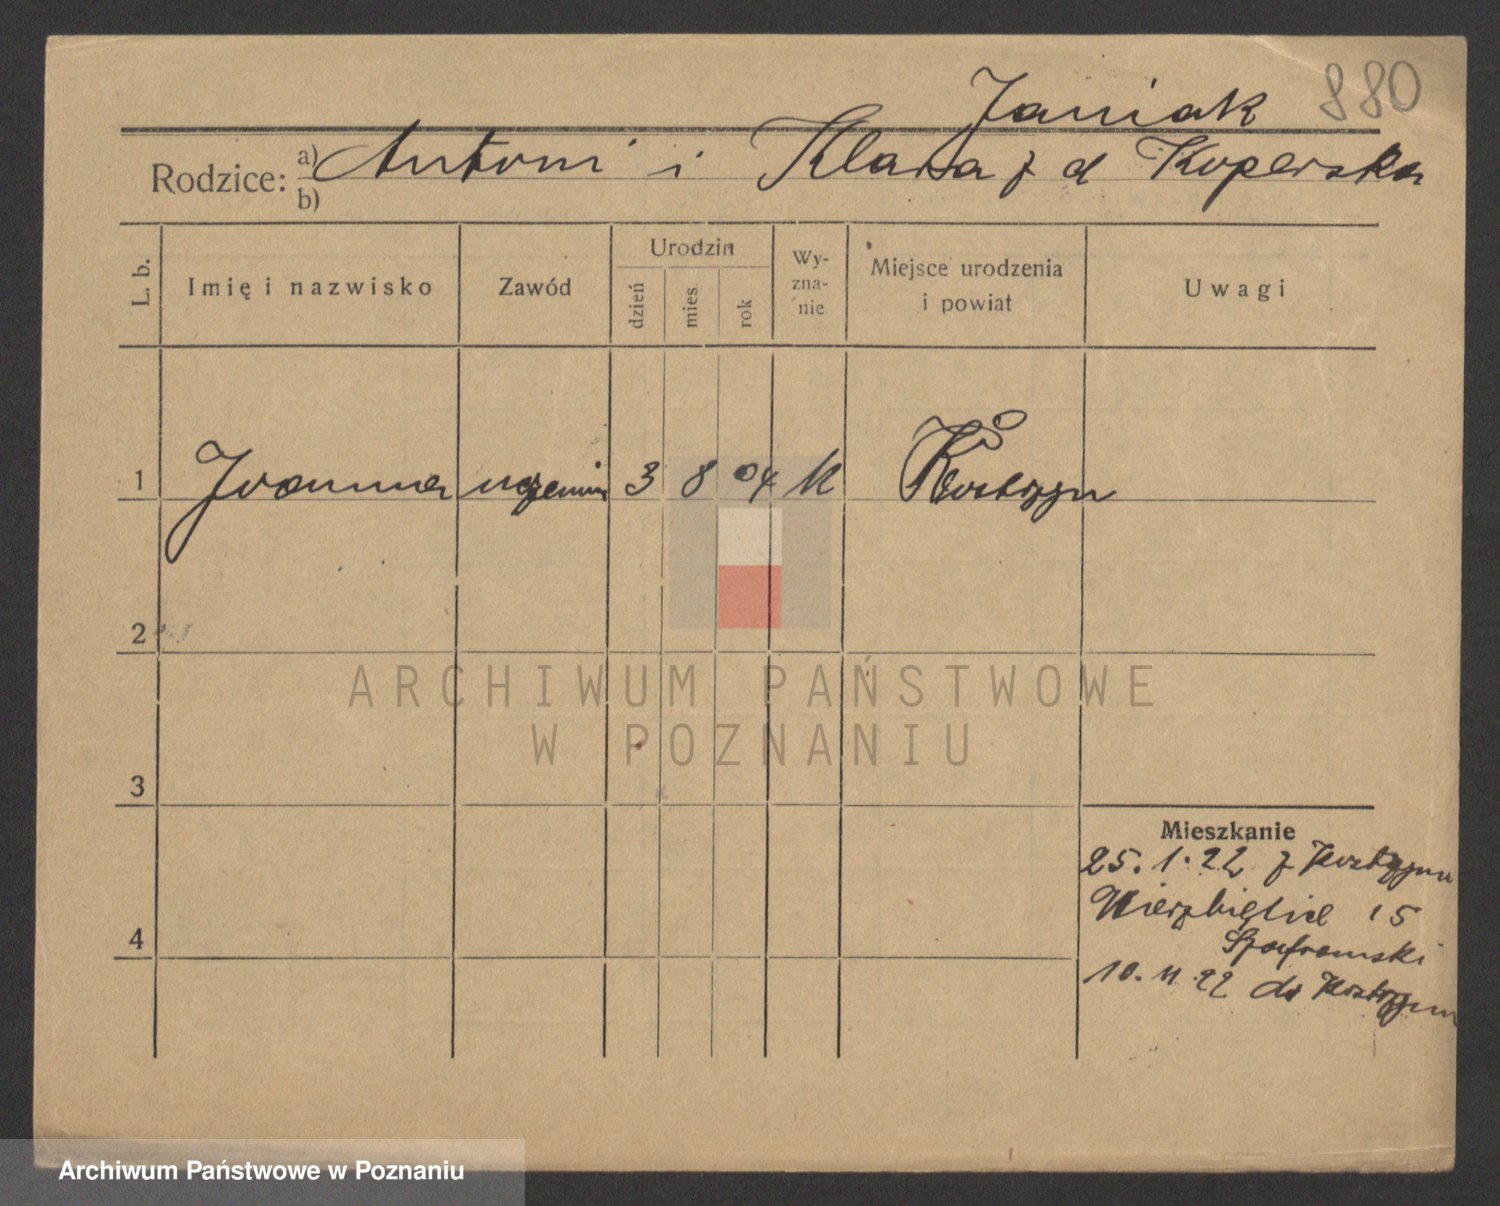 Janiak 880
Rodzice: a) Antoni i Klara z d Koperska
b)
L. b. Imię i nazwisko Zawód Urodzin dzień mies. rok Wy-zna-nie Miejsce urodzenia i powiat Uwagi
1 Joanna uczenni 3 8 04 k Kostrzyn
2
3
4
Mieszkanie
25. 1. 22 z Kostrzynu
Wierzbięcice 15
Szafranski
10. 11. 22 do Kostrzynu
ARCHIWUM PAŃSTWOWE
W POZNANIU
Archiwum Państwowe w Poznaniu